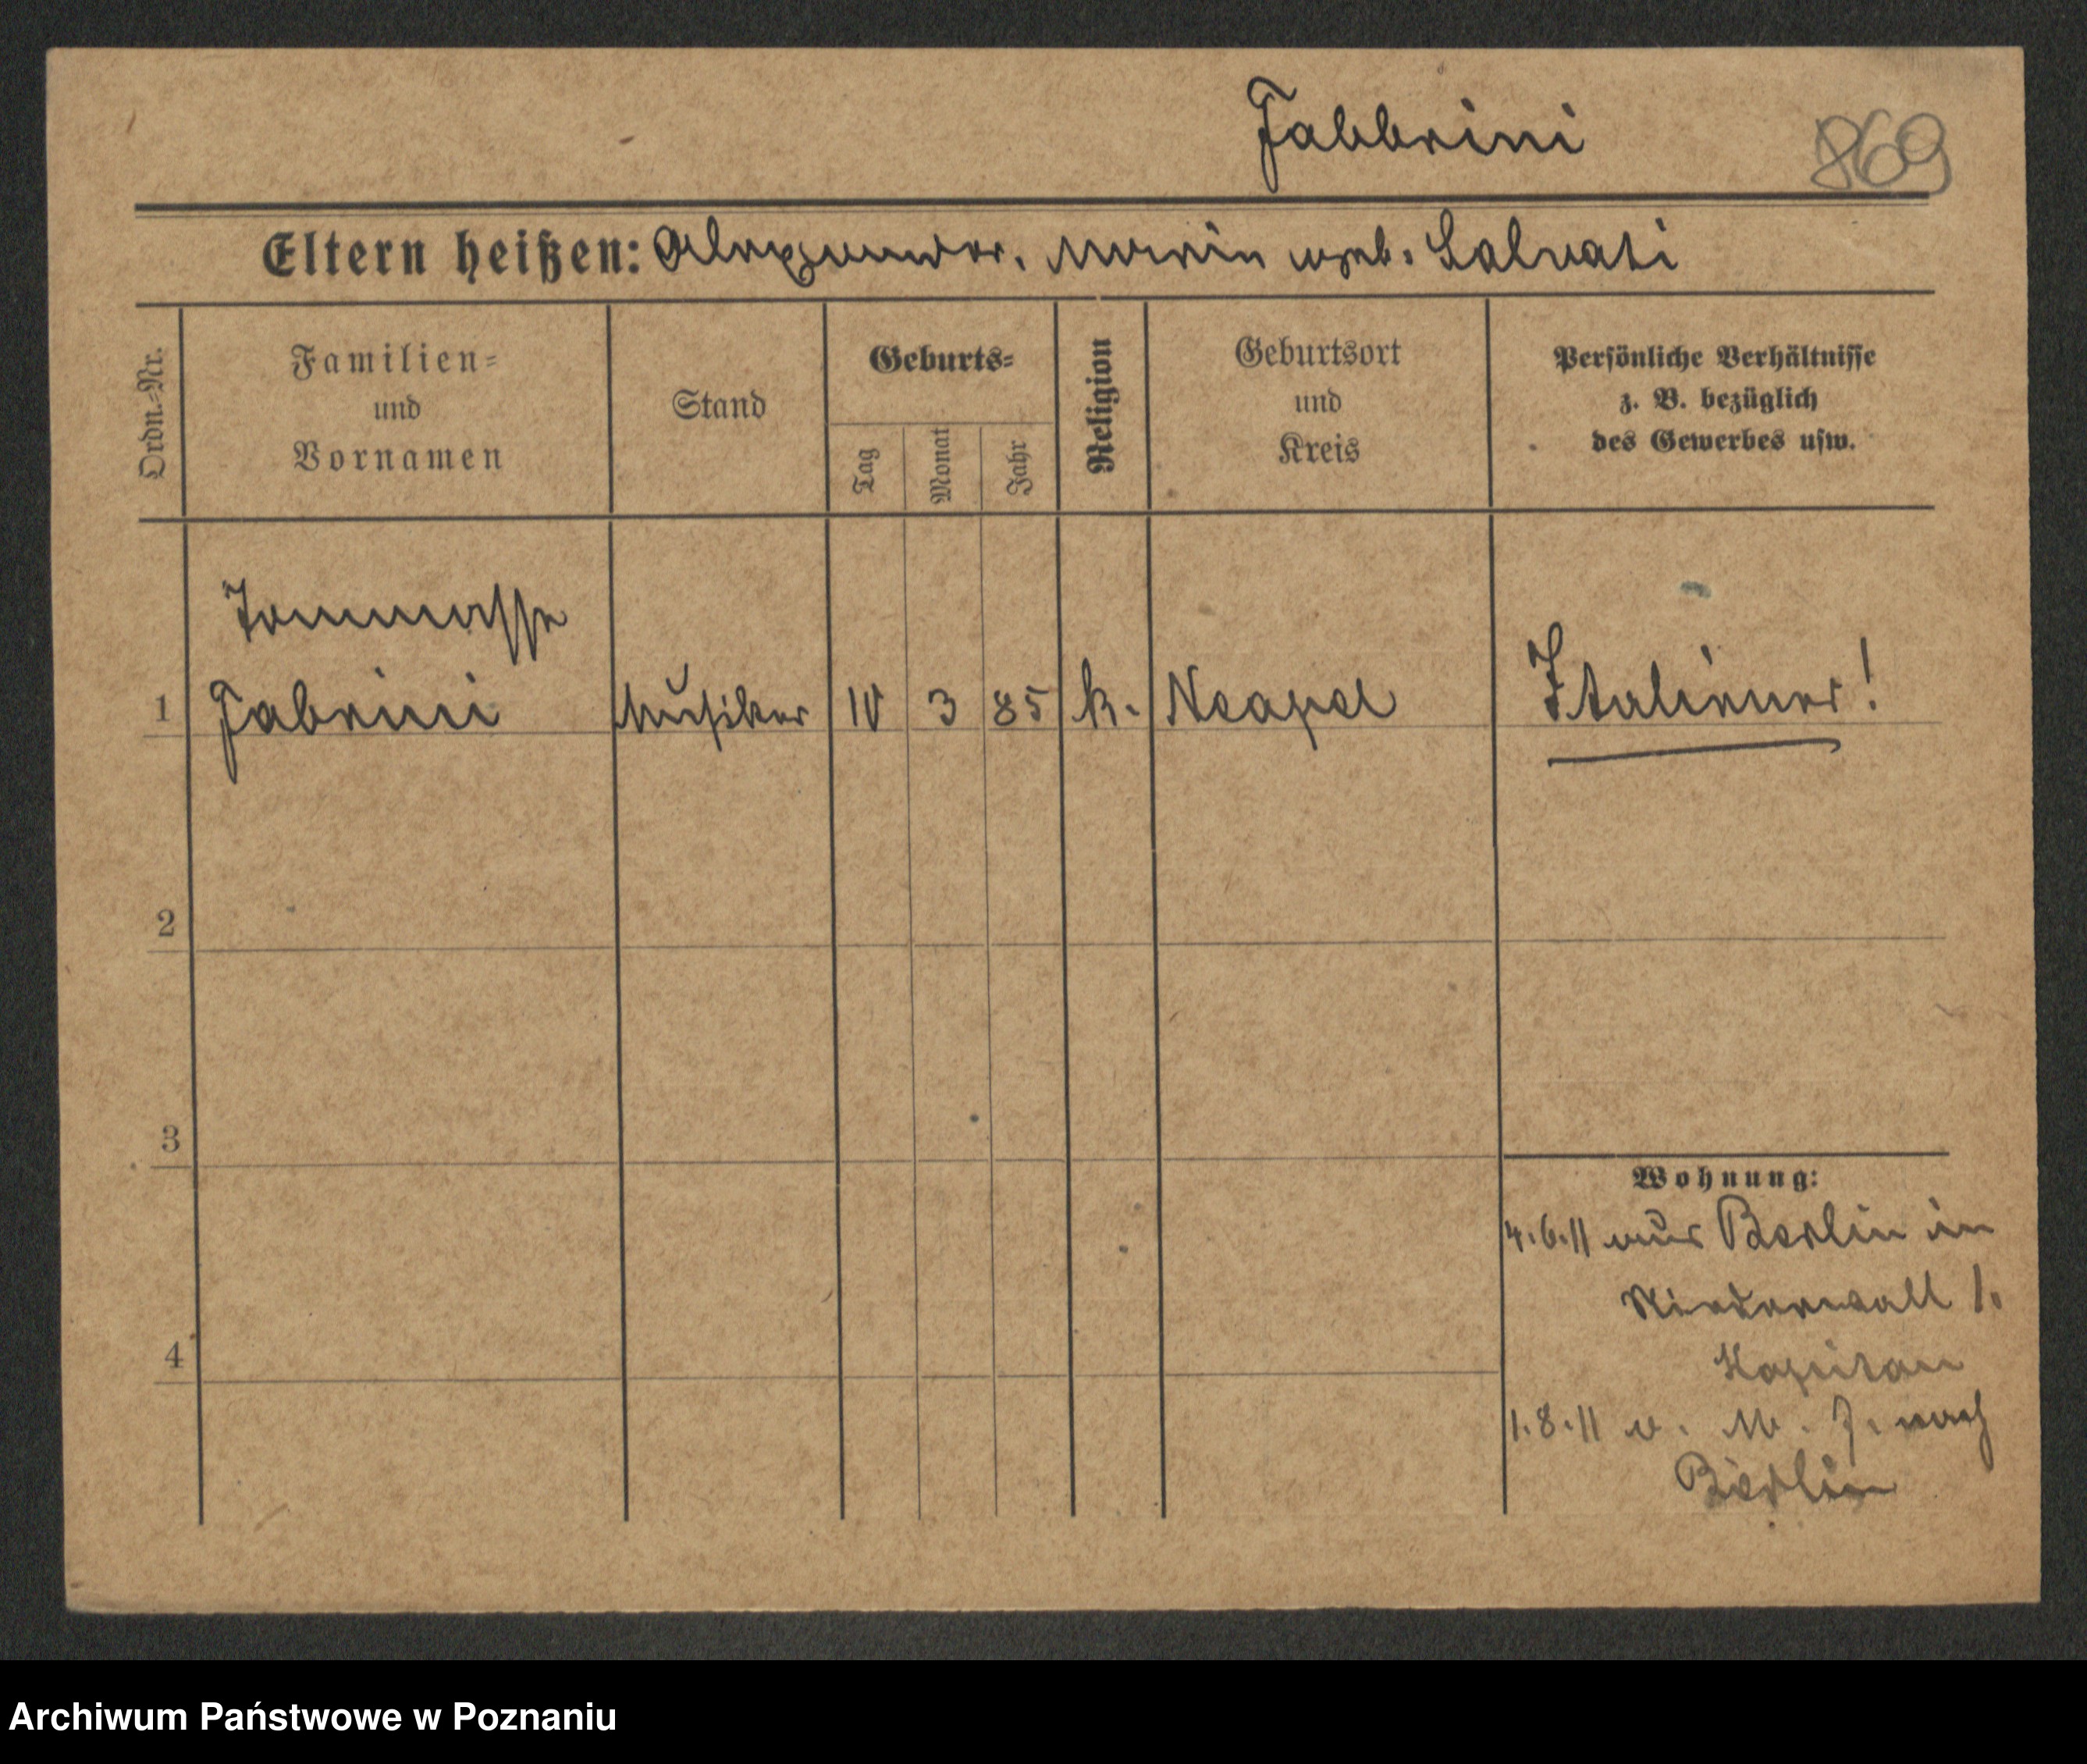 Fabbrini
869
Eltern heißen: Alexander, Maria geb. Salvati
Ordn.=Nr.
Familien=
und
Vornamen
Stand
Geburts=
Tag
Monat
Jahr
Religion
Geburtsort
und
Kreis
Persönliche Verhältnisse
z. B. bezüglich
des Gewerbes usw.
Tommasse
1 Fabrini Musiker 10 3 85 k. Neapel Italiener!
2
3
4
Wohnung:
4.6.11 aus Berlin in
Niederwall 1.
1.8.11 nach
Berlin
Archiwum Państwowe w Poznaniu